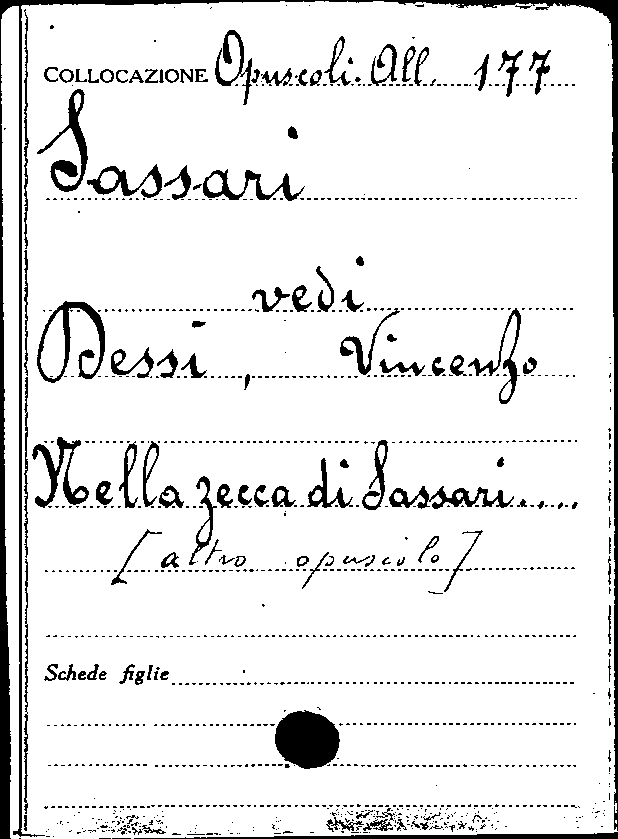 COLLOCAZIONE Opuscoli. All. 177
Sassari
vedi
Dessi, Vincenzo
Nella zecca di Sassari.....
[altro opuscolo]
Schede figlie